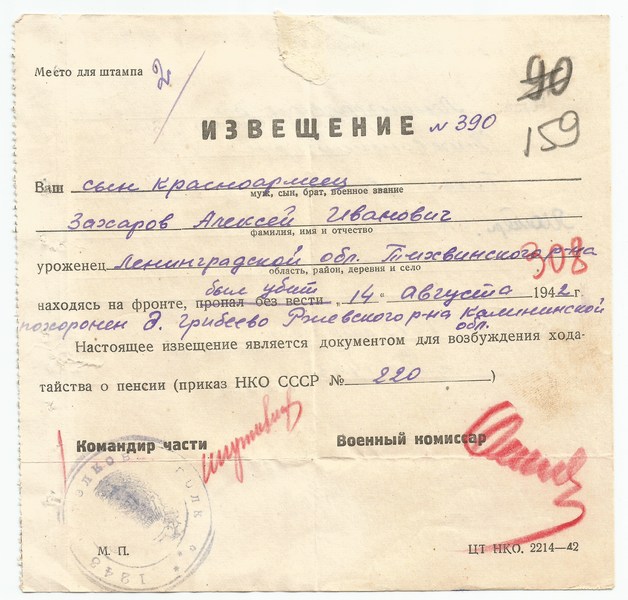 Место для штампа 2/
90
159
ИЗВЕЩЕНИЕ N 390
Ваш сын красноармеец
муж, сын, брат, военное звание
Захаров Алексей Иванович
фамилия, имя и отчество
уроженец Ленинградской обл. Тихвинского р-на
308
область, район, деревня и село
был убит
находясь на фронте, пропал без вести, 14 Августа 1942 г.
похоронен д. Грибеево Ржевского р-на Калининской
обл.
Настоящее извещение является документом для возбуждения хода-
тайства о пенсии (приказ НКО СССР № 220)
Командир части
Военный комиссар
1248
М. П.
ЦТ НКО. 2214—42